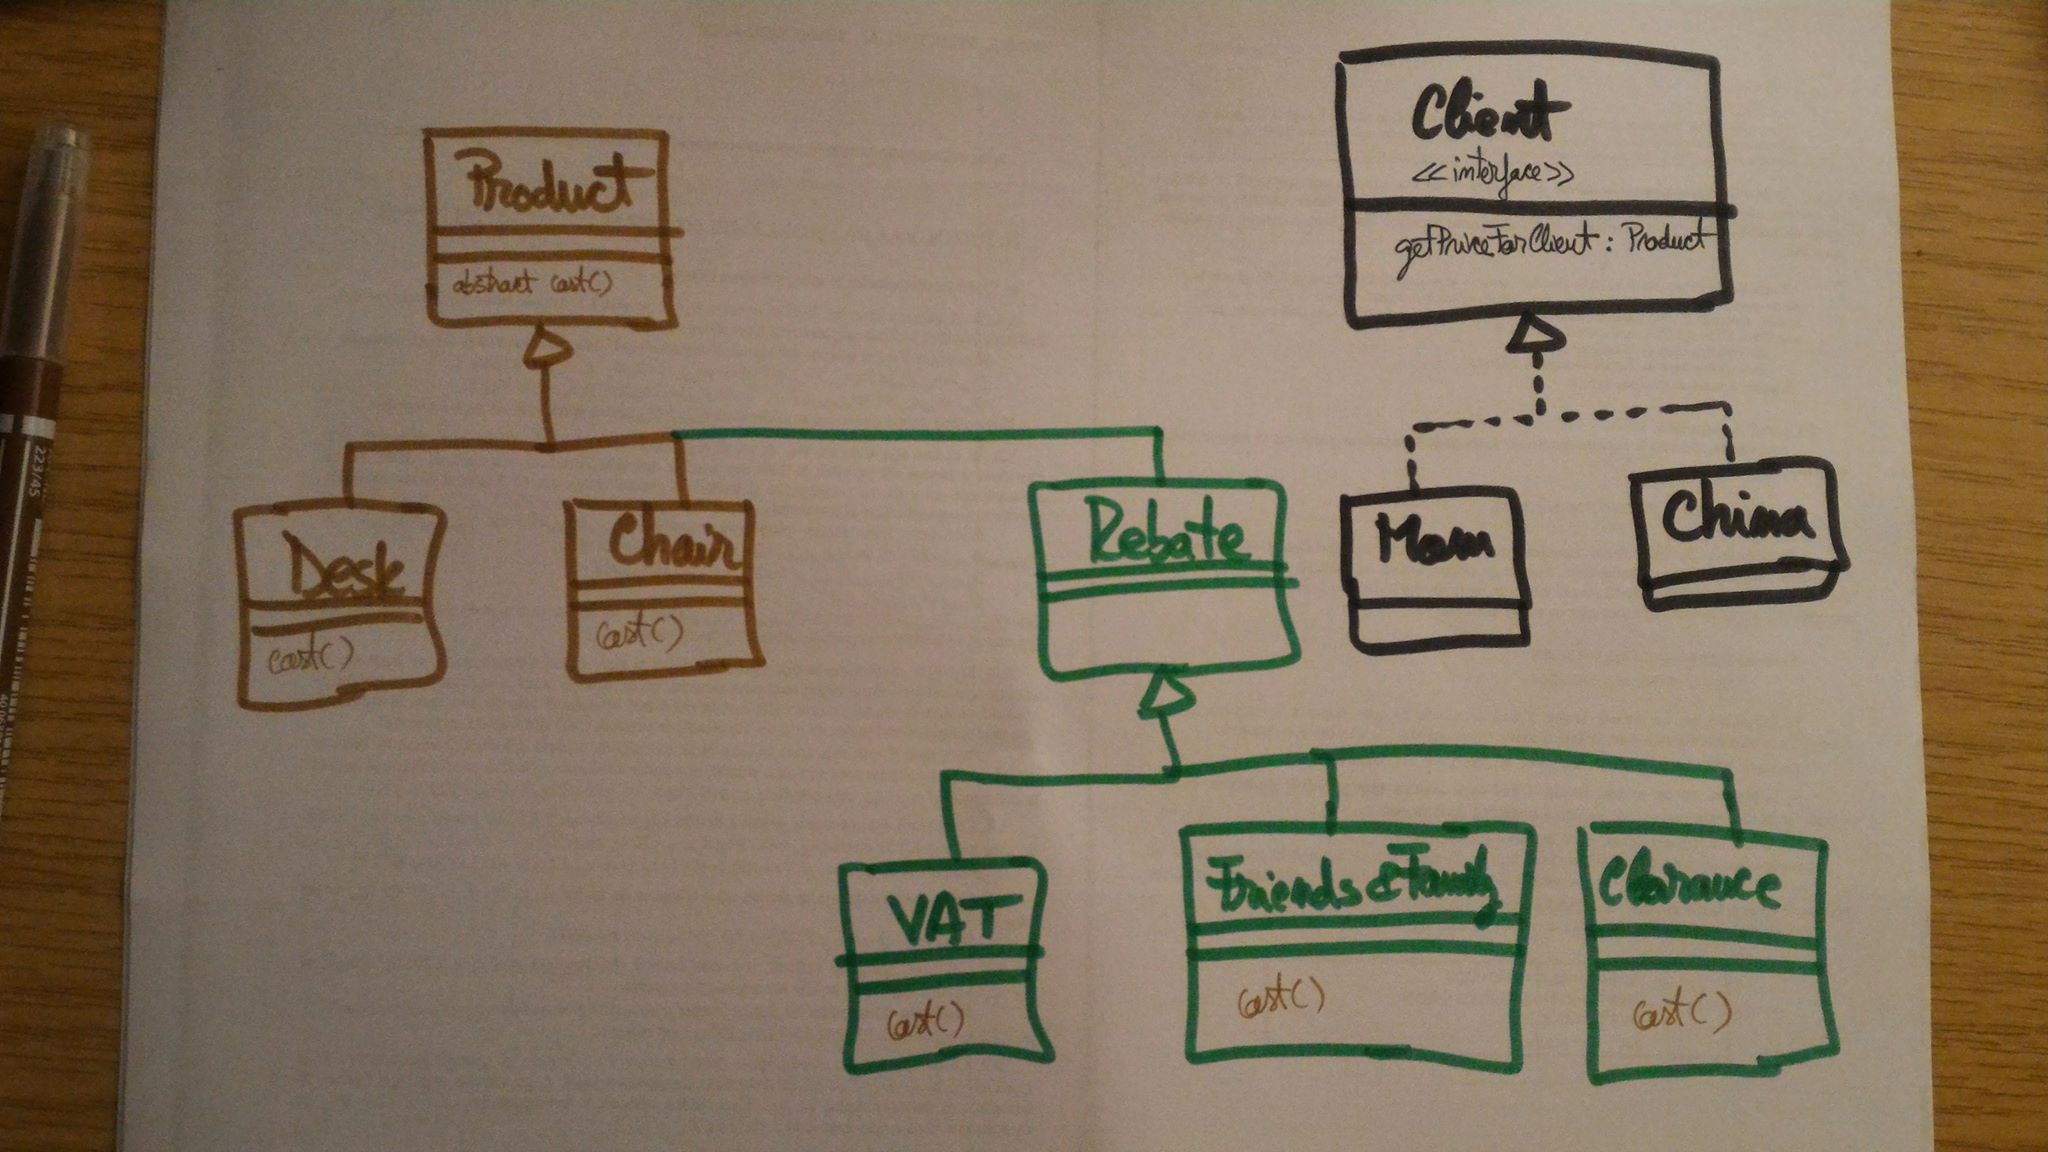 Product
abstract cost()
Client
<<interface>>
getPriceForClient : Product
Desk
cost()
Chair
cost()
Rebate
Mom
China
VAT
cost()
Friends & Family
cost()
Clearance
cost()
223/45